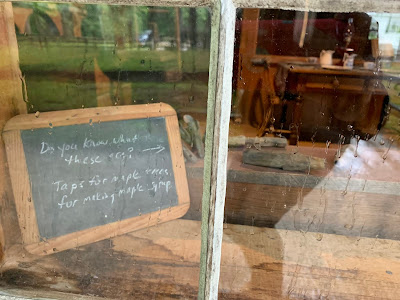 Do you know what
these are? →
Taps for maple trees
for making maple syrup